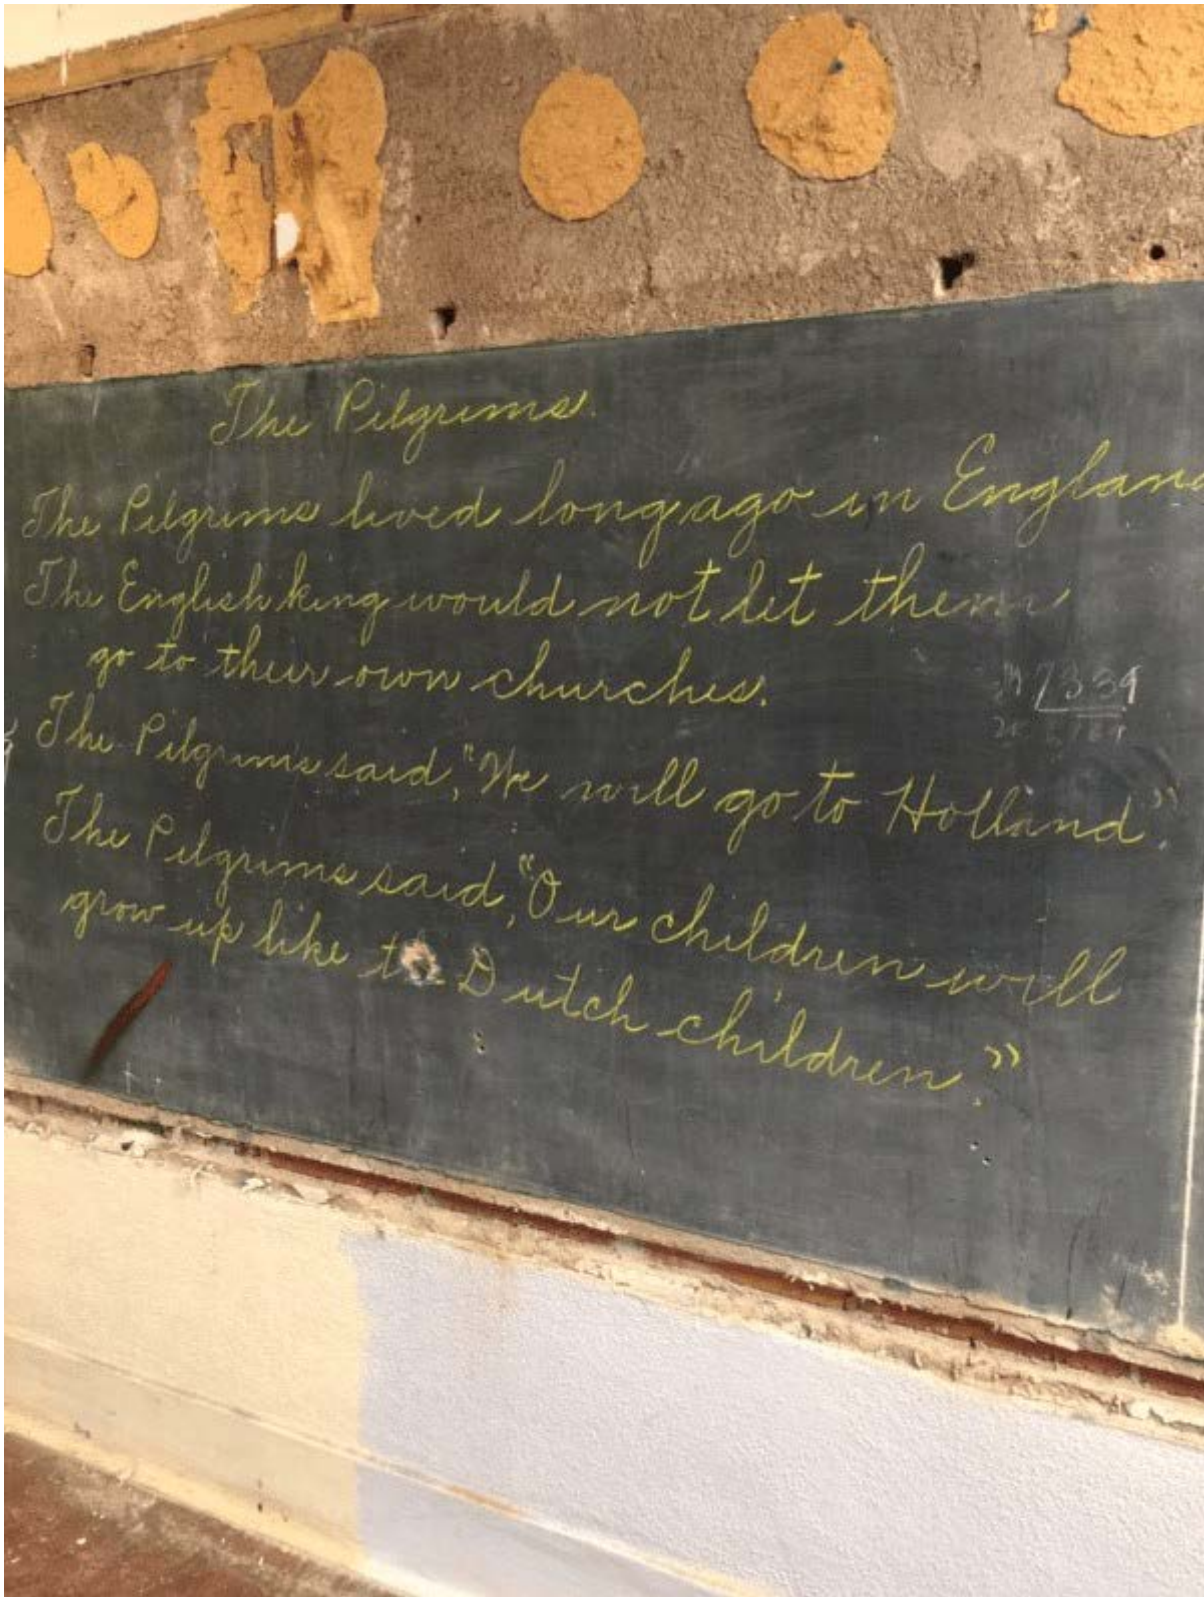 The Pilgrims.
The Pilgrims lived long ago in Englan
The English king would not let them
go to their own churches.
The Pilgrims said, "We will go to Holland."
The Pilgrims said, "Our children will
grow up like Dutch children."
7339